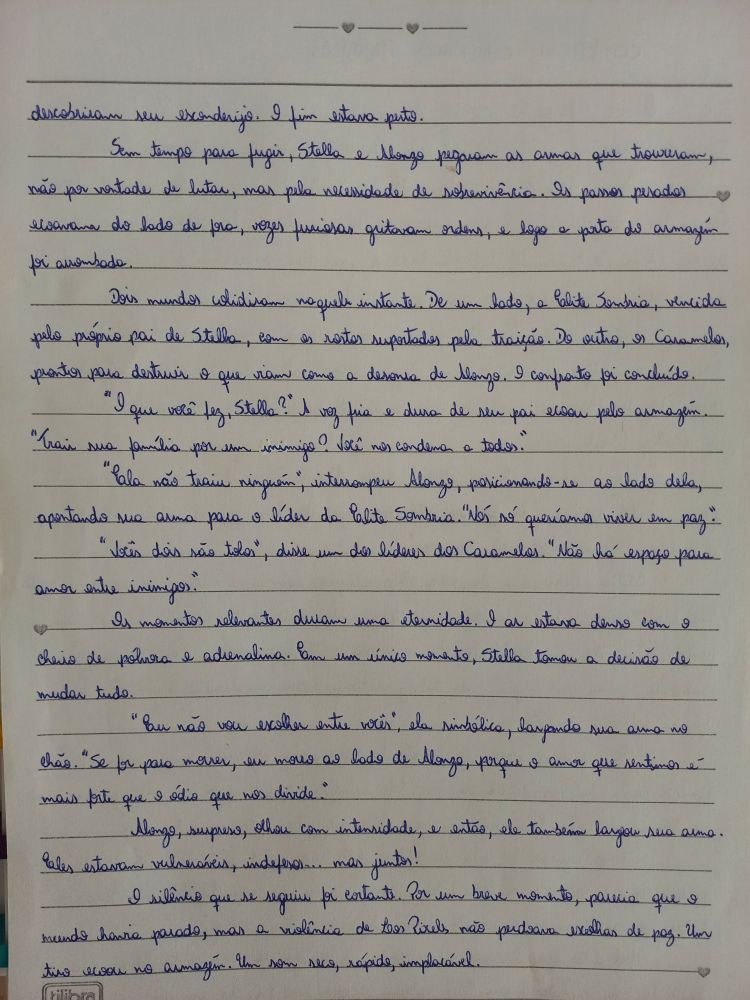 descobriram seu esconderijo. O fim estava perto.
Sem tempo para fugir, Stella e Alonzo pegaram as armas que trouxeram,
não por vontade de lutar, mas pela necessidade de sobrevivência. Os passos pesados
ecoavam do lado de fora, vozes furiosas gritavam ordens, e logo a porta do armazém
foi arrombada.
Dois mundos colidiram naquele instante. De um lado, a Elite Sombria, vencida
pelo próprio pai de Stella, com os rostos suportados pela traição. Do outro, os Caramelos,
prontos para destruir o que viam como a desonra de Alonzo. O confronto foi concluído.
"O que você fez, Stella?" A voz fria e dura de seu pai ecoou pelo armazém.
"Trair sua família por um inimigo? Você nos condena a todos."
"Ela não traiu ninguém", interrompeu Alonzo, posicionando-se ao lado dela,
apontando sua arma para o líder da Elite Sombria. "Nós só queríamos viver em paz".
"Vocês dois são tolos", disse um dos líderes dos Caramelos. "Não há espaço para
amor entre inimigos."
Os momentos relevantes duram uma eternidade. O ar estava denso com o
cheio de pólvora e adrenalina. Em um único momento, Stella tomou a decisão de
mudar tudo.
"Eu não vou escolher entre vocês", ela simbólica, largando sua arma no
chão. "Se for para morrer, eu morro ao lado de Alonzo, porque o amor que sentimos é
mais forte que o ódio que nos divide."
Alonzo, surpreso, olhou com intensidade, e então, ele também largou sua arma.
Eles estavam vulneráveis, indefesos... mas juntos!
O silêncio que se seguiu foi cortante. Por um breve momento, parecia que o
mundo havia parado, mas a violência de Los Pixels não perdoava escolhas de paz. Um
tiro ecoou no armazém. Um som seco, rápido, implacável.
tilibra